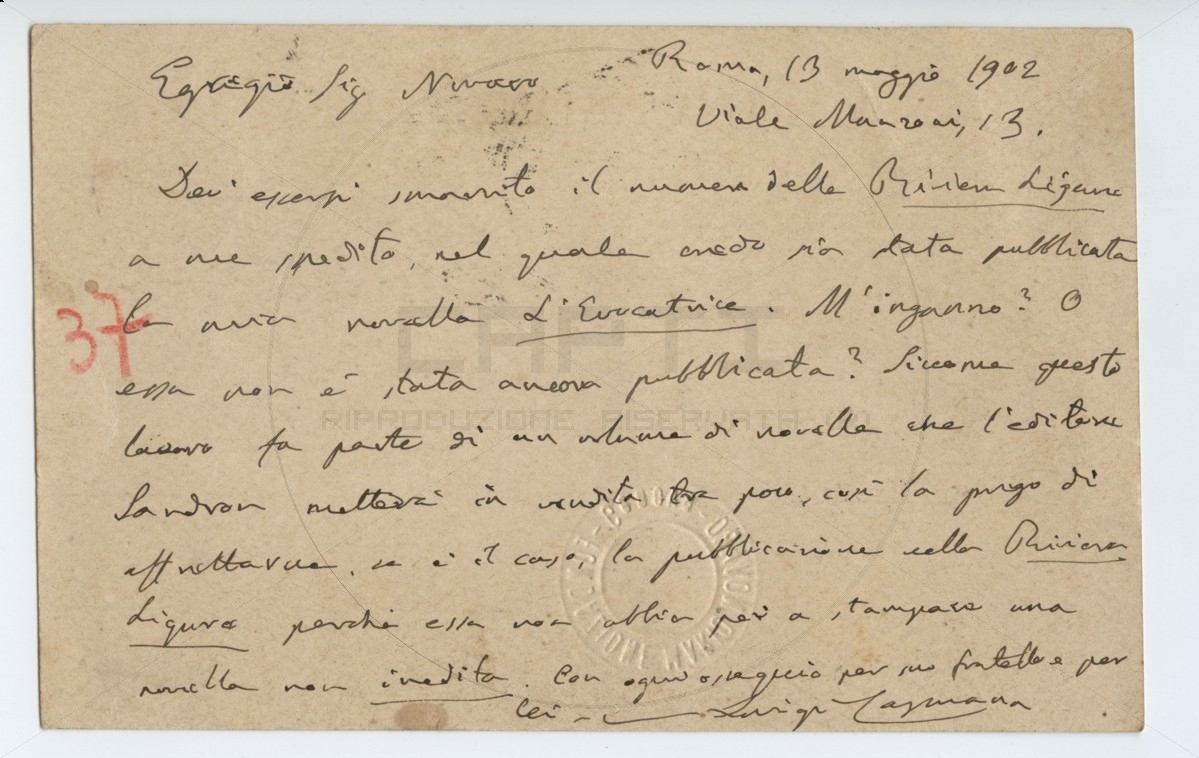 Roma, 13 maggio 1902
Egregio Sig Novaro
Viale Manzoni, 13.
Dev' essersi smarrito il numero della Riviera Ligure
a me spedito, nel quale credo sia stata pubblicata
37
la mia novella L'Evocatrice. M'inganno? O
essa non è stata ancora pubblicata? Siccome questo
lavoro fa parte di un volume di novelle che l'editore
Sandron metterà in vendita tra poco, così la prego di
affrettarne, se è il caso, la pubblicazione nella Riviera
Ligure perché essa non abbia poi a stampare una
novella non inedita. Con ogni ossequio per suo fratello e per
lei - Luigi
RIPRODUZIONE RISERVATA